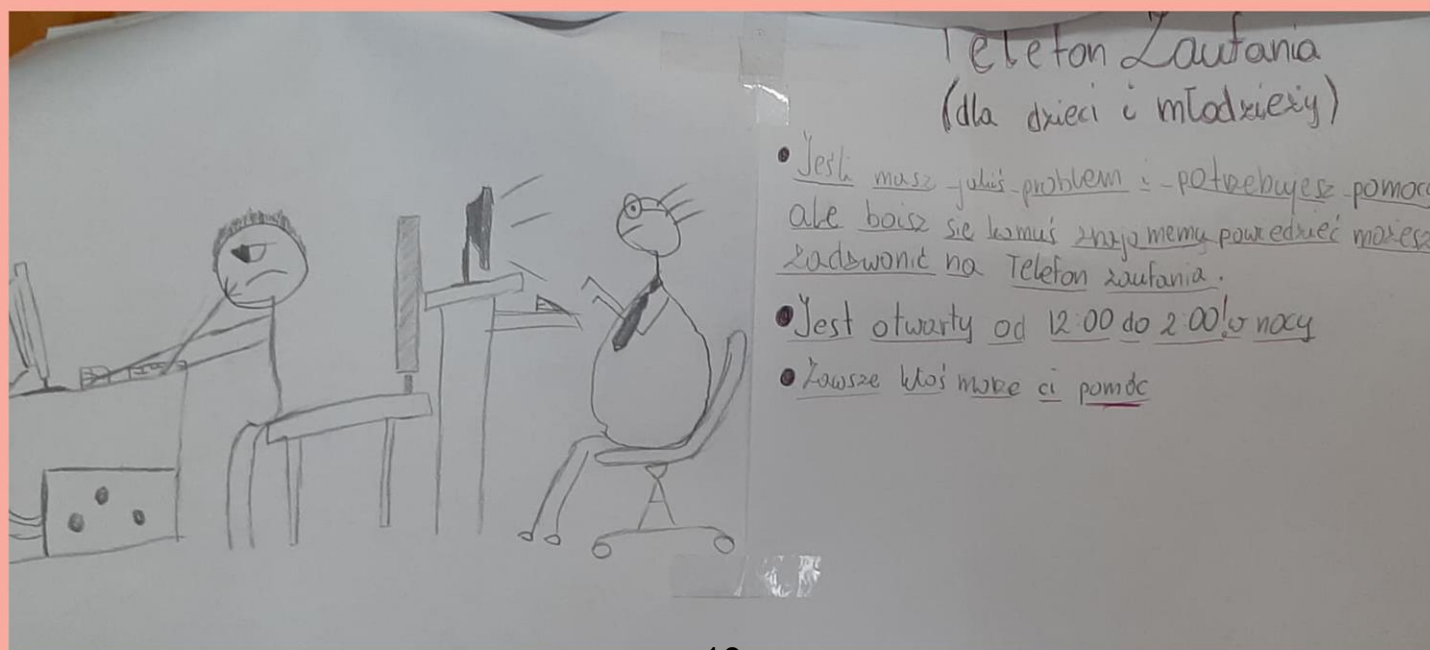 Telefon Zaufania
(dla dzieci i młodzieży)
• Jeśli masz jakiś problem i potrzebujesz pomocy
ale boisz się komuś znajomemu powiedzieć możesz
zadzwonić na Telefon zaufania.
• Jest otwarty od 12:00 do 2:00! w nocy
• Zawsze ktoś może ci pomóc